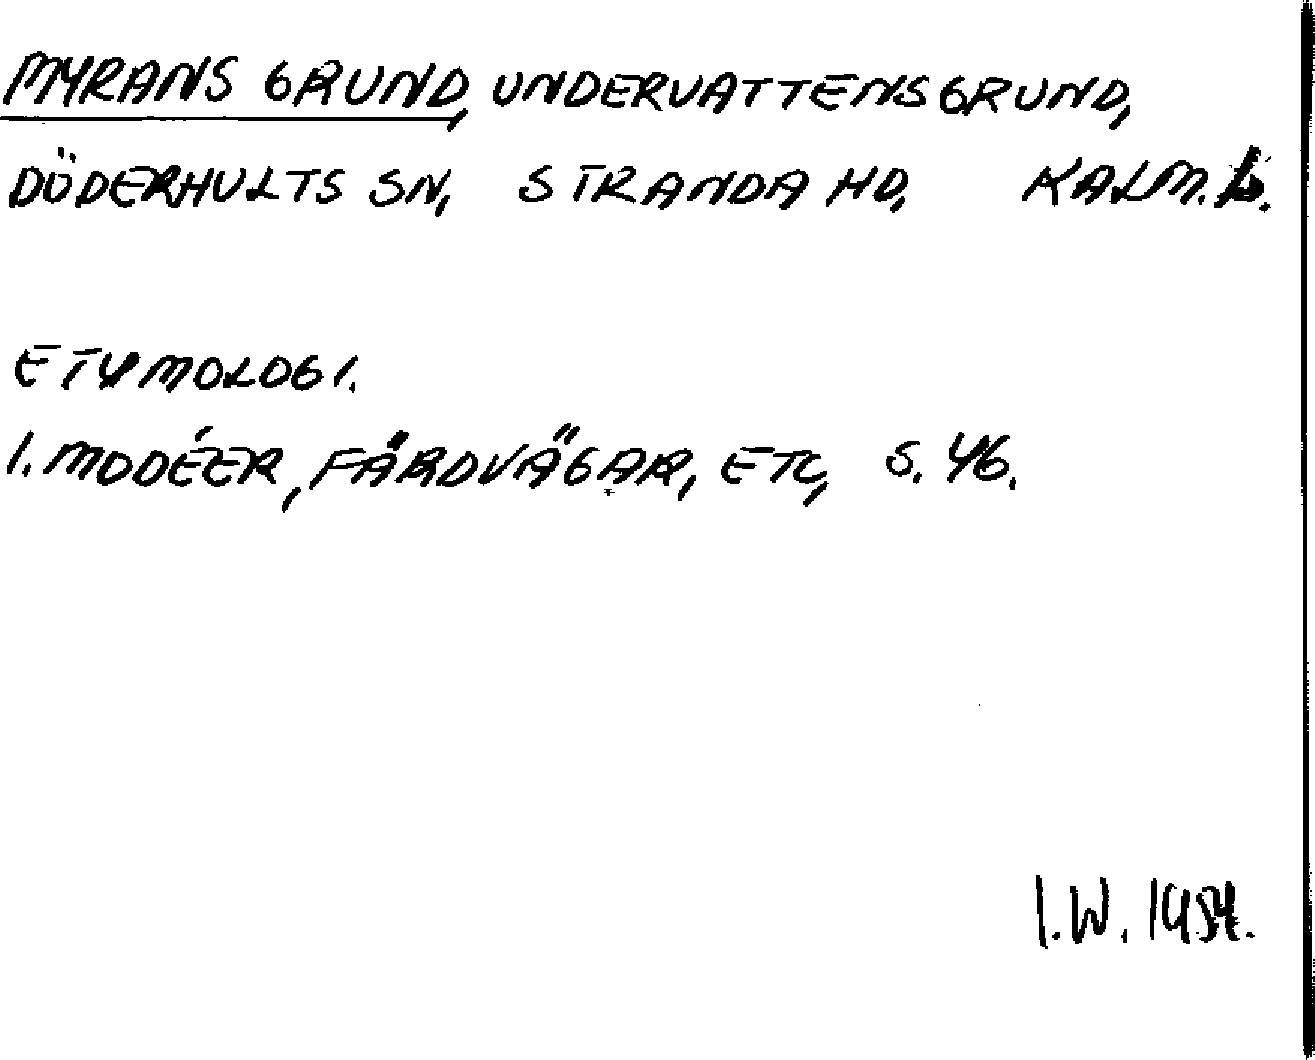 MYRANS GRUND, UNDERVATTENSGRUND,
DÖDERHULTS SN, STRANDA HD, KALM. L.
ETYMOLOGI.
I. MODÉER, FÄRDVÄGAR, ETC, S. 46.
I.W. 1954.